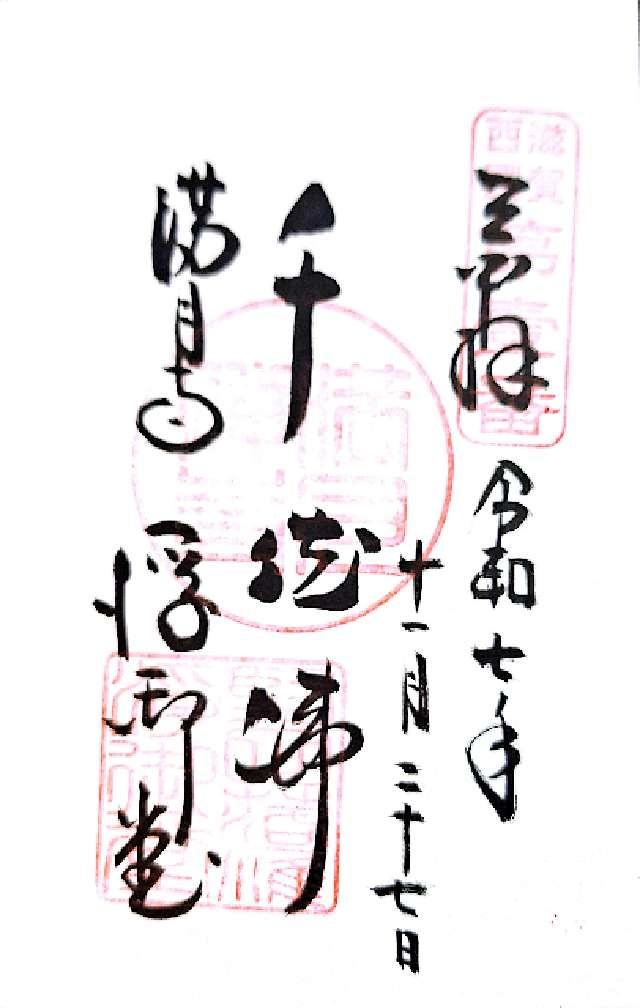 奉拝 令和七年
十一月二十七日
千体佛
満月寺 浮御堂